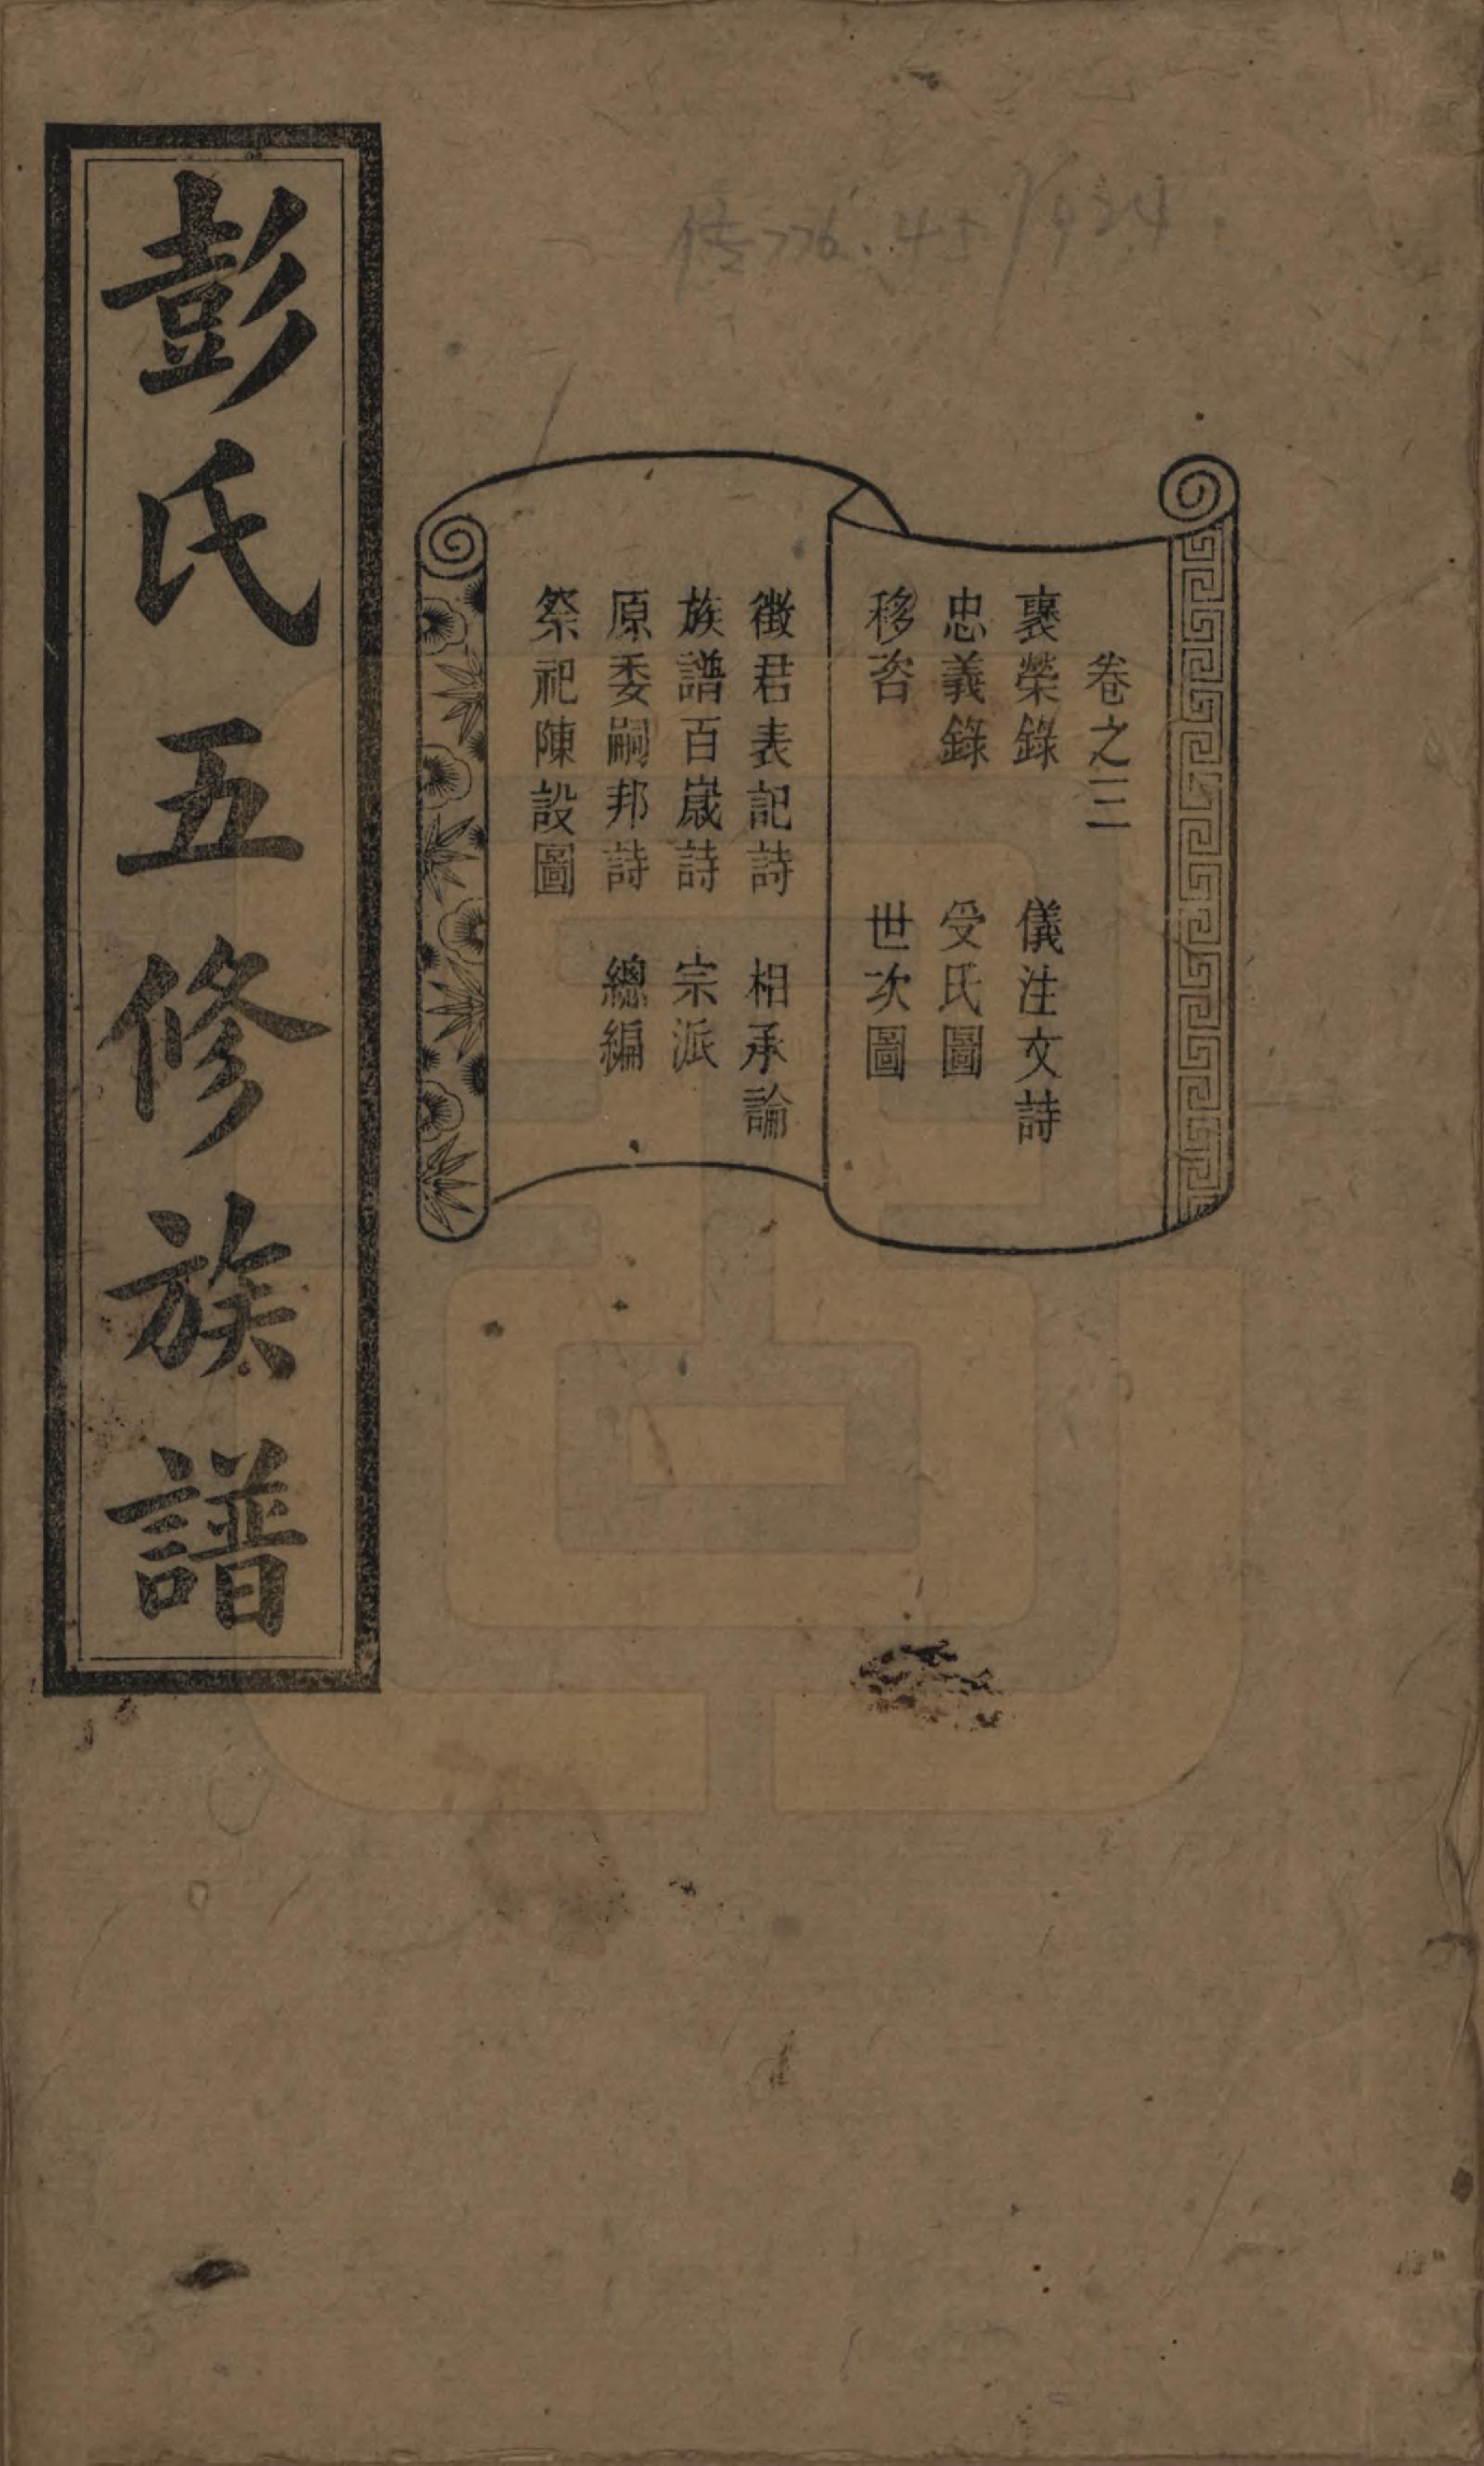 彭氏五修族譜
卷之三
褒榮錄 儀注文詩
忠義錄 受氏圖
移咨 世次圖
徵君表記詩 相承論
族譜百嵗詩 宗派
原委嗣邦詩 總編
祭祀陳設圖
传776.4 1924